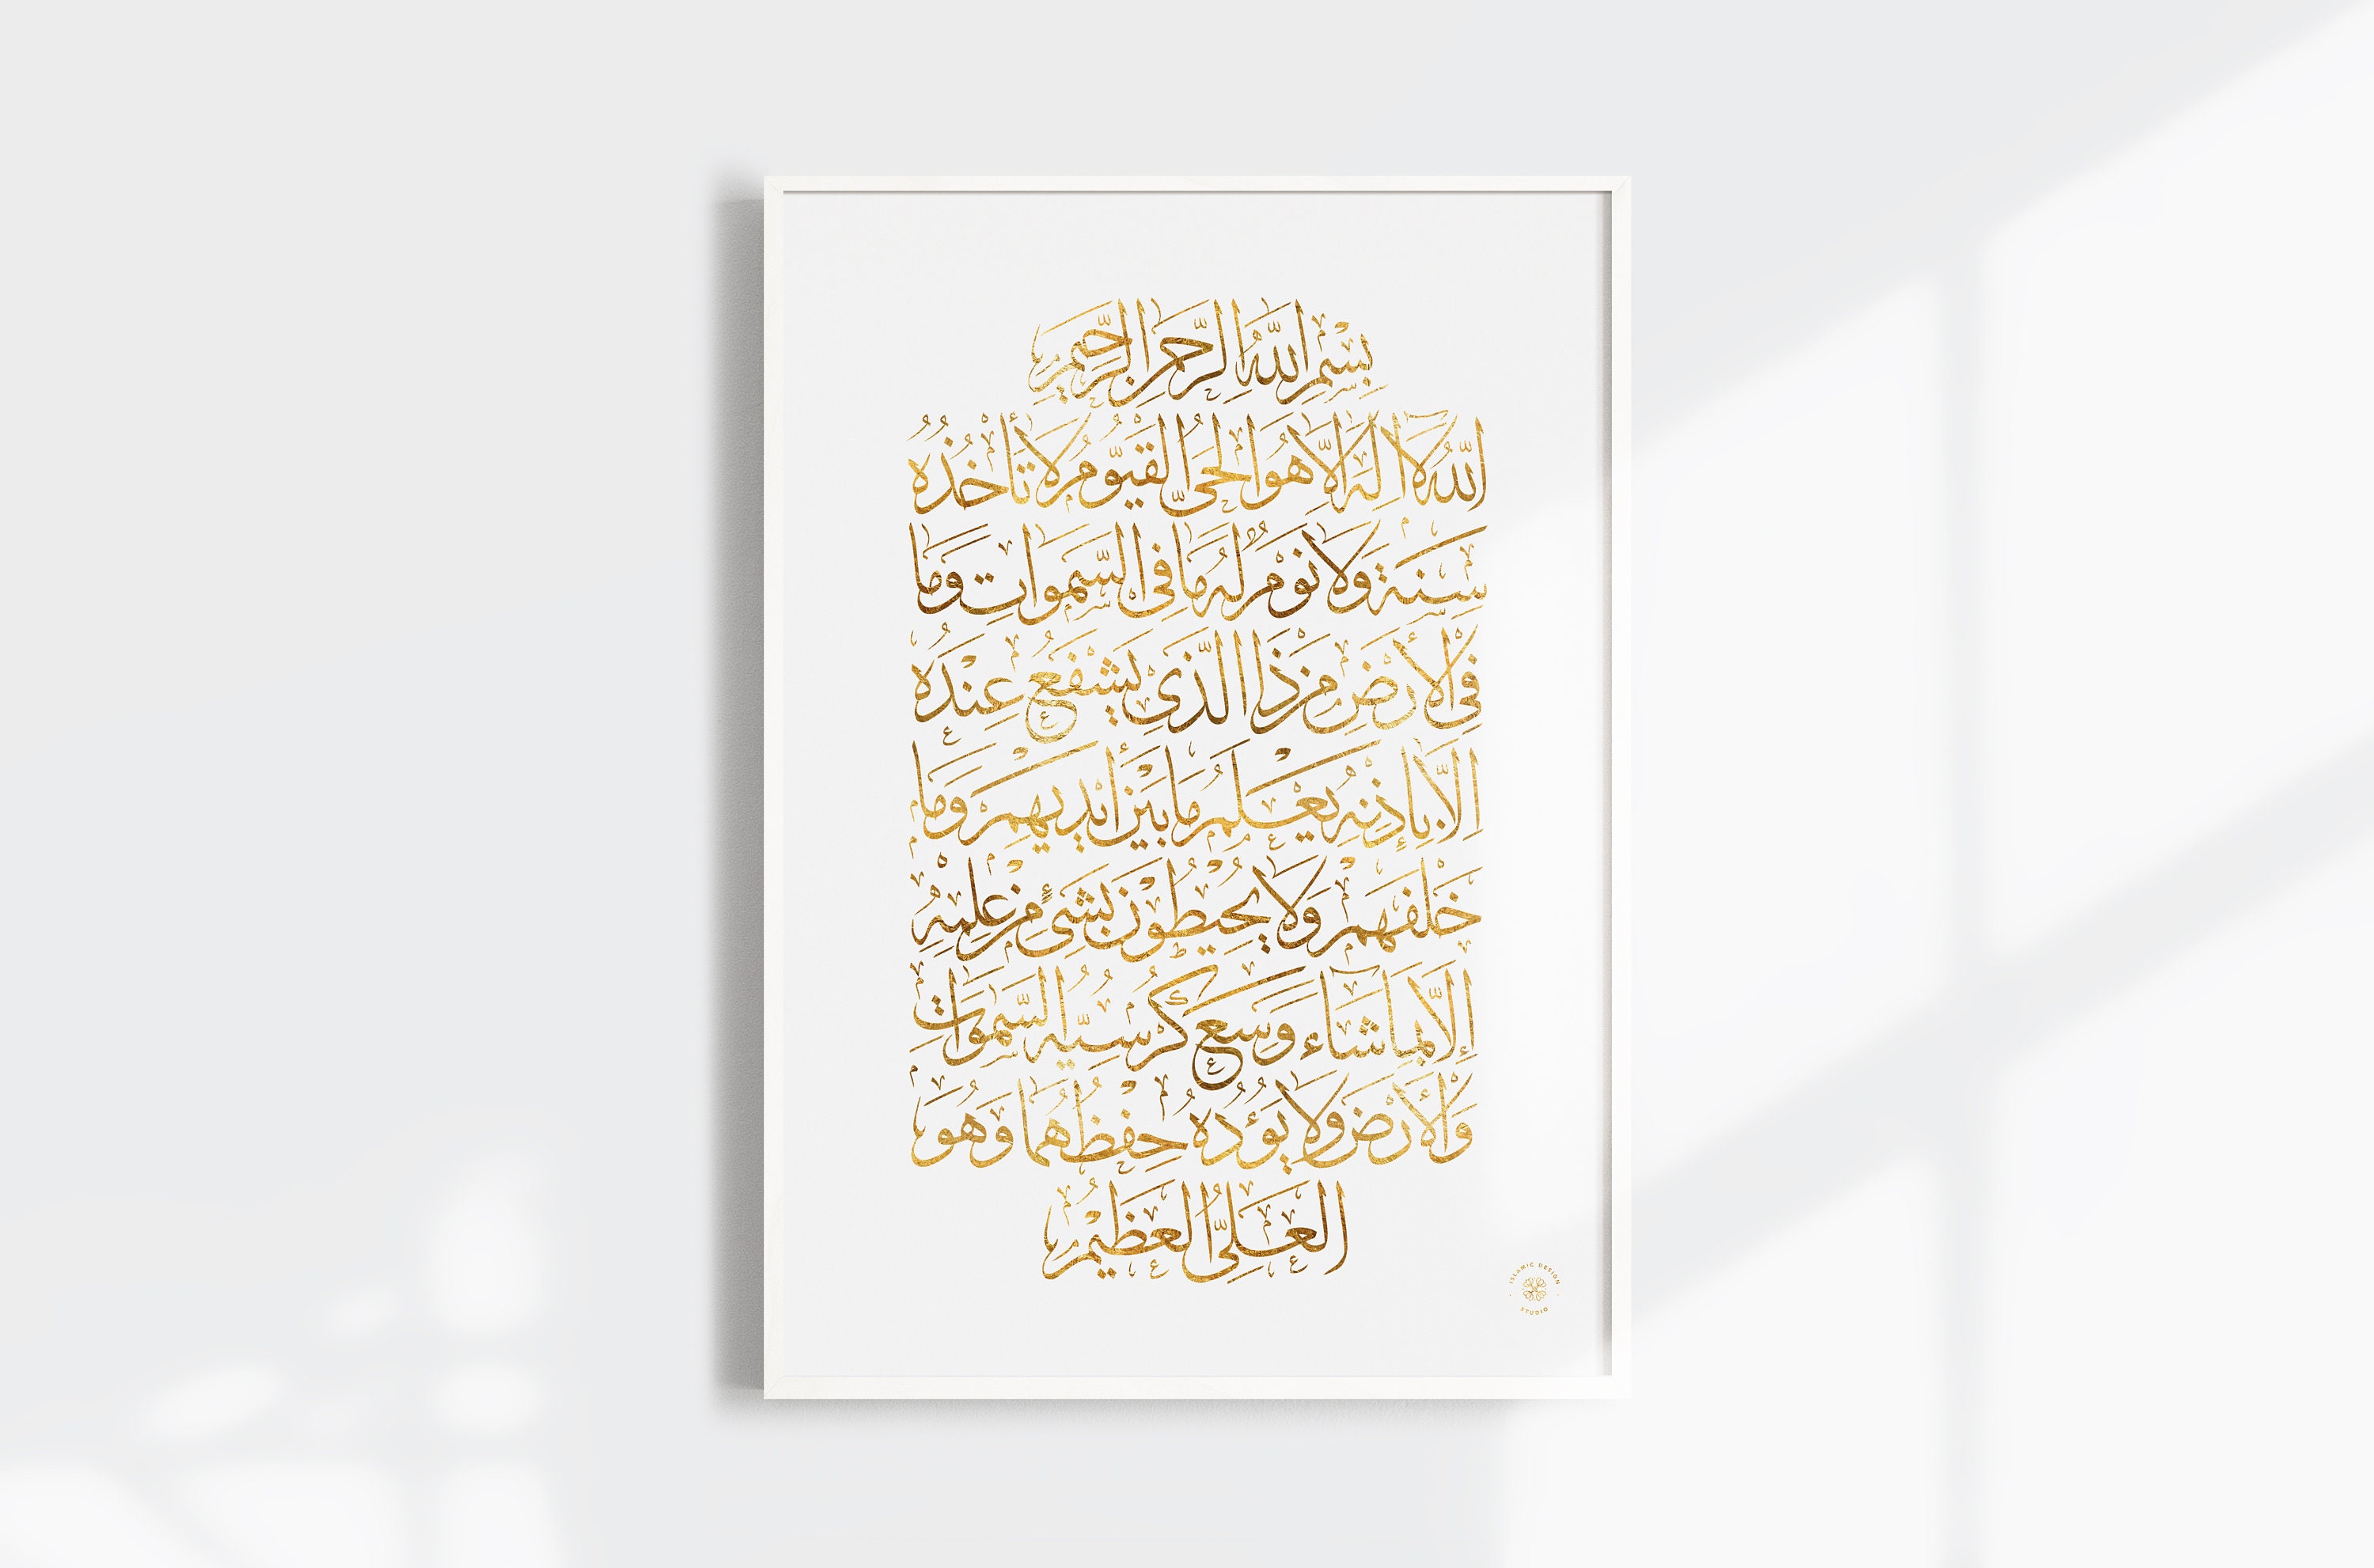 بِسْمِ اللّٰهِ الرَّحْمٰنِ الرَّحِيْمِ
اللّٰهُ لَا اِلٰهَ اِلَّا هُوَ الْحَىُّ الْقَيُّوْمُ لَا تَأْخُذُهُ
سِنَةٌ وَلَا نَوْمٌ لَهُ مَا فِى السَّمٰوَاتِ وَمَا
فِى الْأَرْضِ مَنْ ذَا الَّذِى يَشْفَعُ عِنْدَهُ
اِلَّا بِإِذْنِهِ يَعْلَمُ مَا بَيْنَ أَيْدِيهِمْ وَمَا
خَلْفَهُمْ وَلَا يُحِيْطُوْنَ بِشَىْءٍ مِنْ عِلْمِهِ
إِلَّا بِمَا شَاءَ وَسِعَ كُرْسِيُّهُ السَّمٰوَاتِ
وَالْأَرْضَ وَلَا يَؤُدُهُ حِفْظُهُمَا وَهُوَ
الْعَلِىُّ الْعَظِيْمُ
ISLAMIC DESIGN
STUDIO